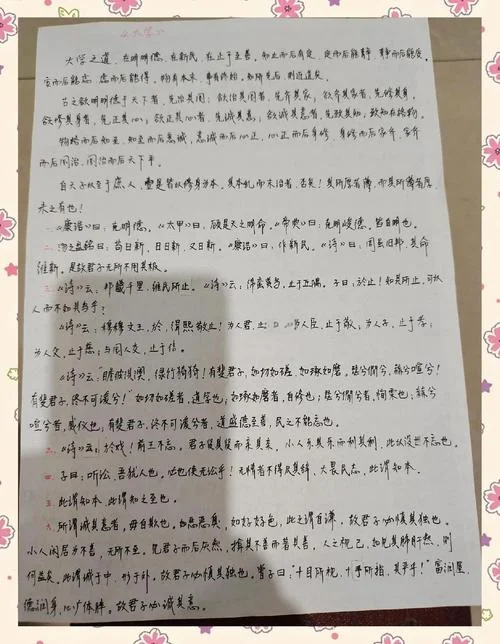 《大学》
大学之道，在明明德，在新民，在止于至善。知止而后有定，定而后能静，静而后能安，
安而后能虑，虑而后能得。物有本末，事有终始。知所先后，则近道矣。
古之欲明明德于天下者，先治其国；欲治其国者，先齐其家；欲齐其家者，先修其身；
欲修其身者，先正其心；欲正其心者，先诚其意；欲诚其意者，先致其知；致知在格物。
物格而后知至，知至而后意诚，意诚而后心正，心正而后身修，身修而后家齐，家齐
而后国治，国治而后天下平。
自天子以至于庶人，壹是皆以修身为本。其本乱而末治者，否矣！其所厚者薄，而其所薄者厚，
未之有也！
一、《康诰》曰：克明德。《太甲》曰：顾是天之明命。《帝典》曰：克明峻德。皆自明也。
二、汤之盘铭曰：苟日新，日日新，又日新。《康诰》曰：作新民。《诗》曰：周虽旧邦，其命
维新。是故君子无所不用其极。
三、《诗》云：邦畿千里，维民所止。《诗》云：绵蛮黄鸟，止于丘隅。子曰：於止！知其所止，可以
人而不如其鸟乎？
《诗》云：穆穆文王，於，缉熙敬止！为人君，止 为人臣，止于敬；为人子，止于孝；
为人父，止于慈；与国人交，止于信。
《诗》云："瞻彼淇澳，绿竹猗猗！有斐君子，如切如磋，如琢如磨，瑟兮僴兮，赫兮喧兮！
有斐君子，终不可谖兮！"如切如磋者，道学也；如琢如磨者，自修也；瑟兮僴兮者，恂栗也；赫兮
喧兮者，威仪也；有斐君子，终不可谖兮者，道盛德至善，民之不能忘也。
《诗》云：於戏！前王不忘。君子贤其贤而亲其亲，小人乐其乐而利其利，此以没世不忘也。
四、子曰：听讼，吾犹人也。必也使无讼乎！无情者不得尽其辞，大畏民志，此谓知本。
五、此谓知本，此谓知之至也。
六、所谓诚其意者，毋自欺也。如恶恶臭，如好好色，此之谓自谦，故君子必慎其独也。
小人闲居为不善，无所不至。见君子而后厌然，揜其不善而著其善。人之视己，如见其肺肝然，则
何益矣。此谓诚于中，形于外。故君子必慎其独也。曾子曰："十目所视，十手所指，其严乎！"富润屋，
德润身，心广体胖。故君子必诚其意。